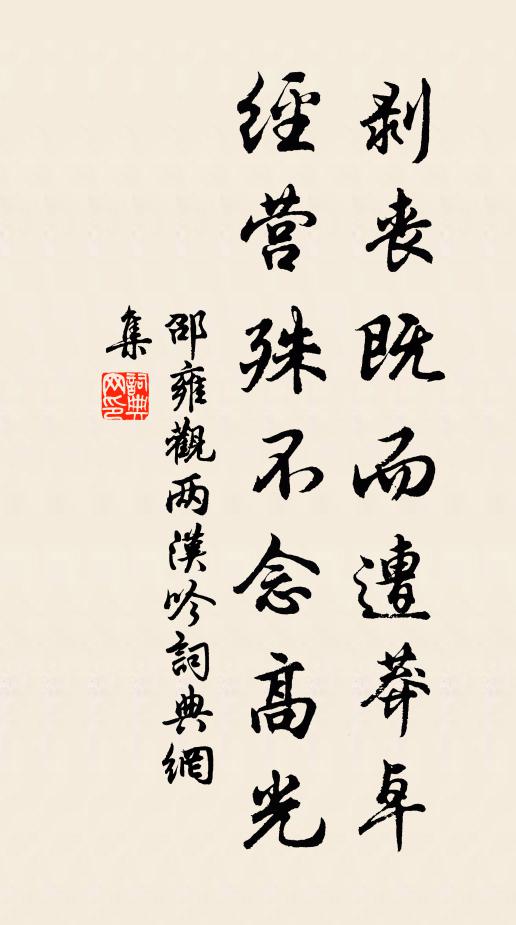 剥丧既而遭莽卓
经营殊不念高光
邵雍觀两漢吟詞典網
集
詞典
网印